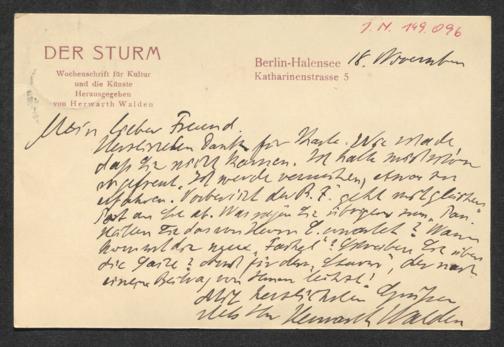 J. N. 149.096
DER STURM
Wochenschrift für Kultur
und die Künste
Herausgegeben
von Herwarth Walden
Berlin-Halensee
Katharinenstrasse 5
18. November
Mein lieber Freund.
Herzlichen Dank für Karte. Wie schade,
dass Sie nicht kamen. Ich hatte mich schon
so gefreut. Ich werde versuchen, etwas zu
erfahren. geht mit gleicher
Post an Sie ab. Was sagen Sie übrigens zum
Hätten Sie das von Herrn erwartet? Wann
kommt die neue Fackel? Schreiben Sie über
die ? für den Sturm, der nach
einem Beitrag von Ihnen lechzt!
Mit herzlichsten Grüßen
stets Ihr Herwarth Walden